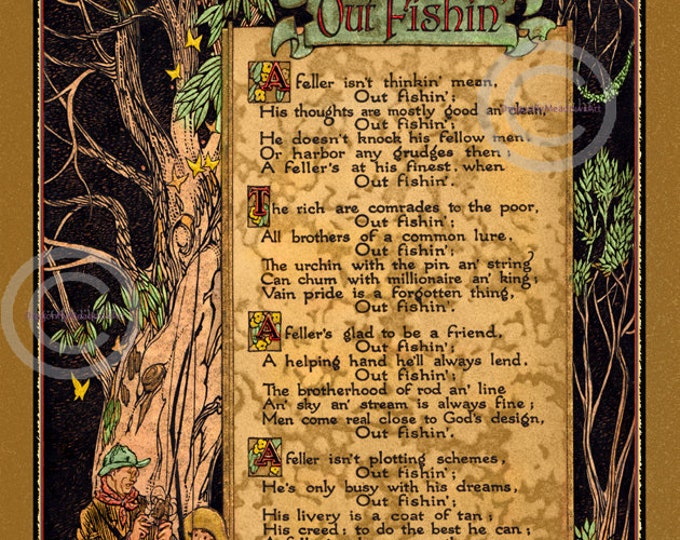 Out Fishin'
A feller isn't thinkin' mean,
Out fishin';
His thoughts are mostly good an' clean,
Out fishin';
He doesn't knock his fellow men,
Or harbor any grudges then;
A feller's at his finest when
Out fishin'.
The rich are comrades to the poor,
Out fishin';
All brothers of a common lure,
Out fishin';
The urchin with the pin an' string
Can chum with millionaire an' king;
Vain pride is a forgotten thing,
Out fishin'.
A feller's glad to be a friend,
Out fishin';
A helping hand he'll always lend,
Out fishin';
The brotherhood of rod an' line
An' sky an' stream is always fine;
Men come real close to God's design,
Out fishin'.
A feller isn't plotting schemes,
Out fishin';
He's only busy with his dreams,
Out fishin';
His livery is a coat of tan,
His creed: to do the best he can;